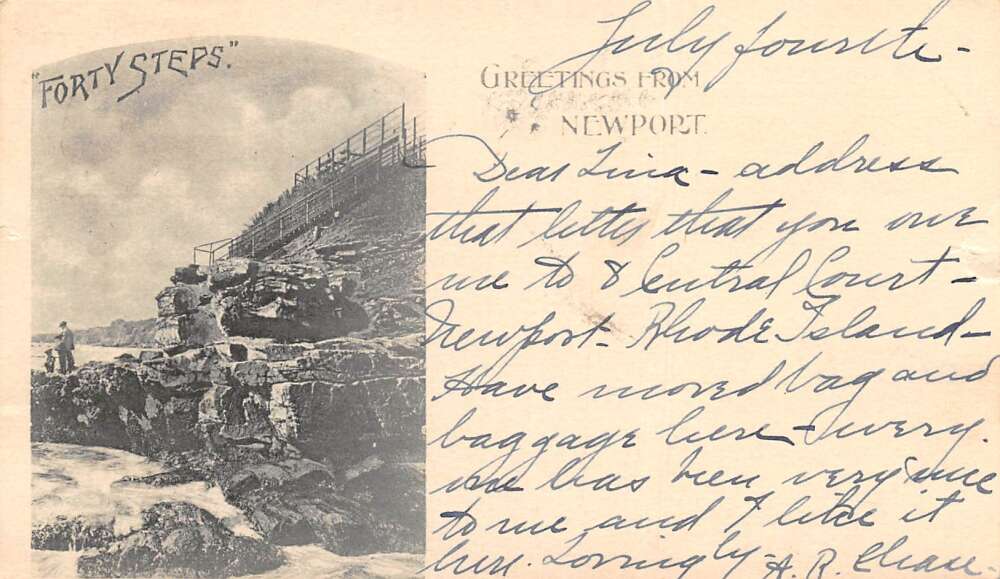 "FORTY STEPS."
July fourth -
GREETINGS FROM
NEWPORT.
Dear Lina - address
that letter that you owe
me to 8 Central Court -
Newport - Rhode Island -
Have moved bag and
baggage here - every
one has been very nice
to me and I like it
here. Lovingly - A. R. Chase -